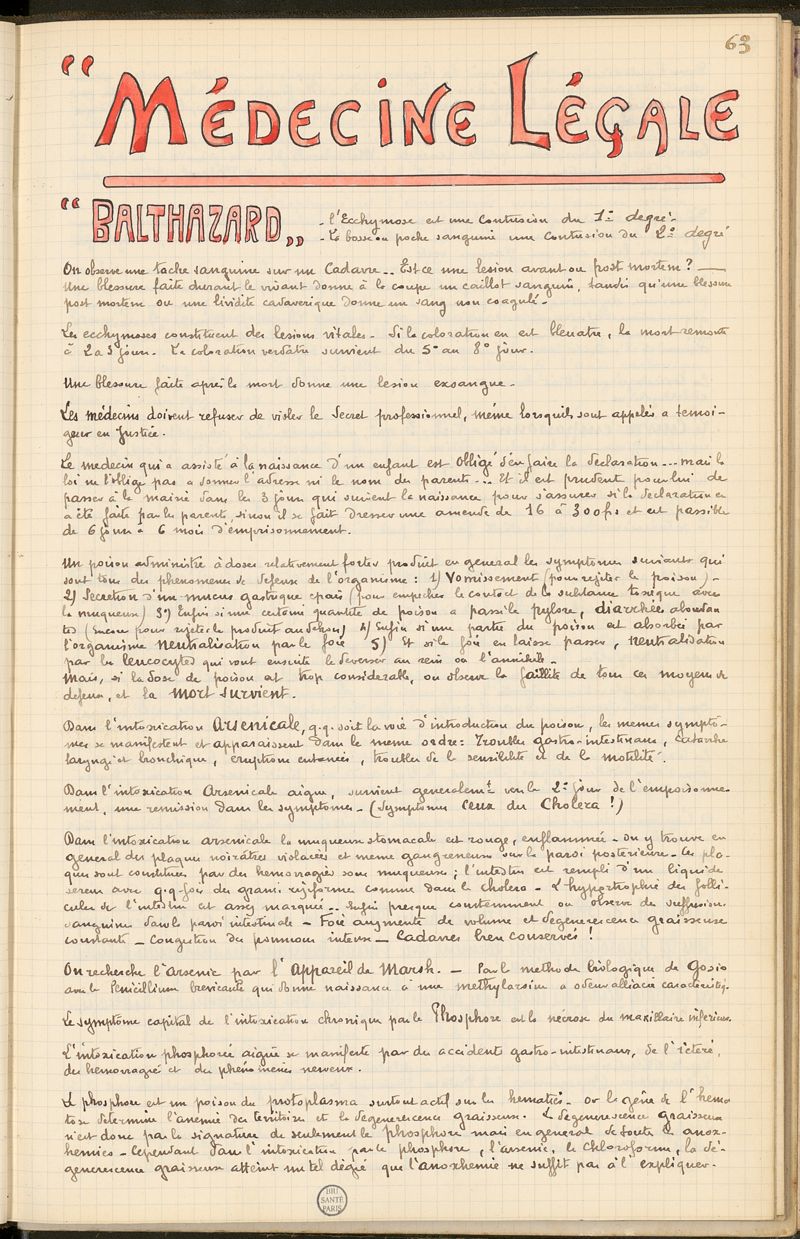 63
"Médecine Légale
"Balthazard„ - l'Ecchymose est une Contusion du 1er degré.
- La bosse ou poche sanguine une contusion du 2e degré
On observe une tache sanguine sur un Cadavre.. Est ce une lesion avant ou post mortem? —
Une blessure faite durant le vivant donne à la coupe un caillot sanguin, tandis qu'une blessure
post mortem ou une lividité cadaverique donne un sang non coagulé.
Les ecchymoses constituent des lesions vitales. Si la coloration en est bleuatre, la mort remonte
à 2 a 3 jours. La coloration verdatre survient du 5e au 8e jour.
Une blessure faite après la mort donne une lesion exsangue.
Les médecins doivent refuser de violer le Secret professionnel, même lorsqu'ils sont appelés a temoi-
gner en Justice.
Le medecin qui a assisté à la naissance d'un enfant est obligé d'en faire la declaration... mais la
loi ne l'oblige pas a donner l'adresse ni le nom des parents... Et il est prudent pour lui de
passer à la mairie dans les 3 jours qui suivent la naissance pour s'assurer si la declaration en
a été faite par les parents, sinon il se fait dresser une amende de 16 à 300 frs et est passible
de 6 jours à 6 mois d'emprisonnement.
Un poison administré à doses relativement fortes produit en general les symptomes suivants qui
sont tous des phenomenes de defense de l'organisme : 1) Vomissement (pour rejeter le poison) -
2) Secretion d'un mucus gastrique epais (pour empecher le contact de la substance toxique avec
la muqueuse) 3°) Enfin si une certaine quantité de poison a passé le pylore, diarrhées abondan
tes (Encore pour rejeter le produit au dehors) 4) Enfin si une partie du poison est absorbée par
l'organisme neutralisation par le foie 5) Et si le foie en laisse passer, neutralisation
par les leucocytes qui vont ensuite le deverser au rein où l'annihiler.
Mais, si la dose de poison est trop considerable, on observe la faillite de tous ces moyens de
defense, et la mort survient.
Dans l'intoxication Arsenicale, q.q. soit la voie d'introduction du poison, les memes sympto-
mes se manifestent et apparaissent dans le meme ordre: Troubles gastro-intestinaux, catarrhe
laryngé et bronchique, eruptions cutanées, troubles de la sensibilité et de la motilité.
Dans l'intoxication Arsenicale aigue, survient generalemt vers le 2e jour de l'empoisonne-
ment, une remission dans les symptomes. (Symptomes ceux du Cholera!)
Dans l'intoxication arsenicale la muqueuse stomacale est rouge, enflammée - On y trouve en
general des plaques noirâtres violacées et meme gangreneuses sur la paroi posterieure - Ces pla-
ques sont constituées par des hemorragies sous muqueuses ; l'intestin est rempli d'un liquide
sereux avec q.q. fois des grains riziformes comme dans le cholera - L'hypertrophie des folli-
cules de l'intestin est assez marquée.. Enfin presque constamment on observe des suffusions
sanguines dans la paroi intestinale - Foie augmenté de volume et degenerescence graisseuse
constante - Congestion des poumons intense - Cadavres bien conservés!
On recherche l'arsenic par l'Appareil de Marsh. - Par la methode biologique de Gosio
avec le Penicillium brevicaule qui donne naissance a une methylarsine a odeur alliacée caracteristiq.
Le symptome capital de l'intoxication chronique par le Phosphore est la nécrose du maxillaire inferieur.
L'intoxication phosphorée aiguë se manifeste par des accidents gastro-intestinaux, de l'ictère,
des hemorragies et des phénomènes nerveux.
Le phosphore est un poison du protoplasma surtout actif sur les hematies - Or la gêne de l'hema
tose determine l'anemie des territoires et la degenerescence graisseuse. La degenerescence graisseuse
n'est donc pas la signature de seulement le phosphore mais en general de toutes les anox-
hemies - Cependant dans l'intoxication par le phosphore, l'arsenic, le chloroforme, la dé-
generescence graisseuse atteint un tel degré que l'anoxhemie ne suffit pas à l'expliquer.
BIU
SANTÉ
PARIS